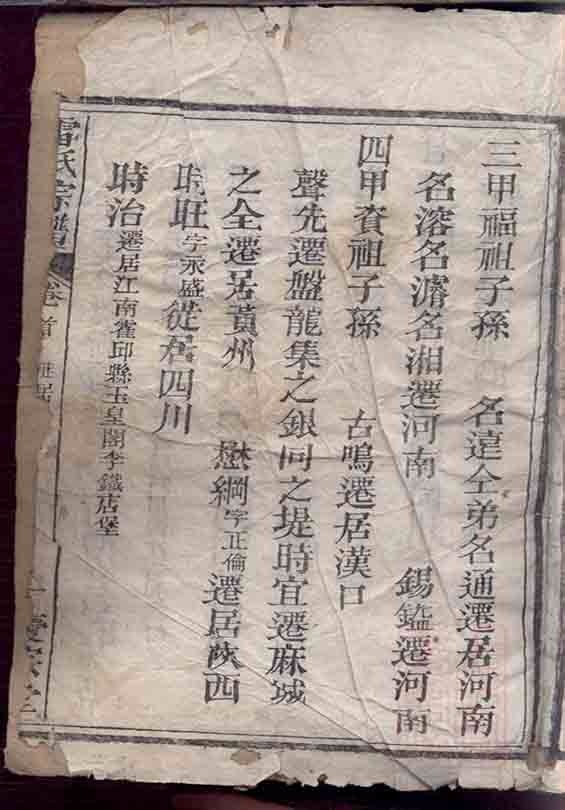 三甲福祖子孫 名達仝弟名通遷居河南
名溶名濬名湘遷河南 錫鎰遷河南
四甲賓祖子孫 古鳴遷居漢口
聲先遷盤龍集之銀同之堤時宜遷麻城
之全遷居黃州 懋綱字正倫遷居陝西
旺字永盛從居四川
時治遷居江南霍邱縣玉皇閣李鐵店堡
雷氏宗譜 卷首 遷居